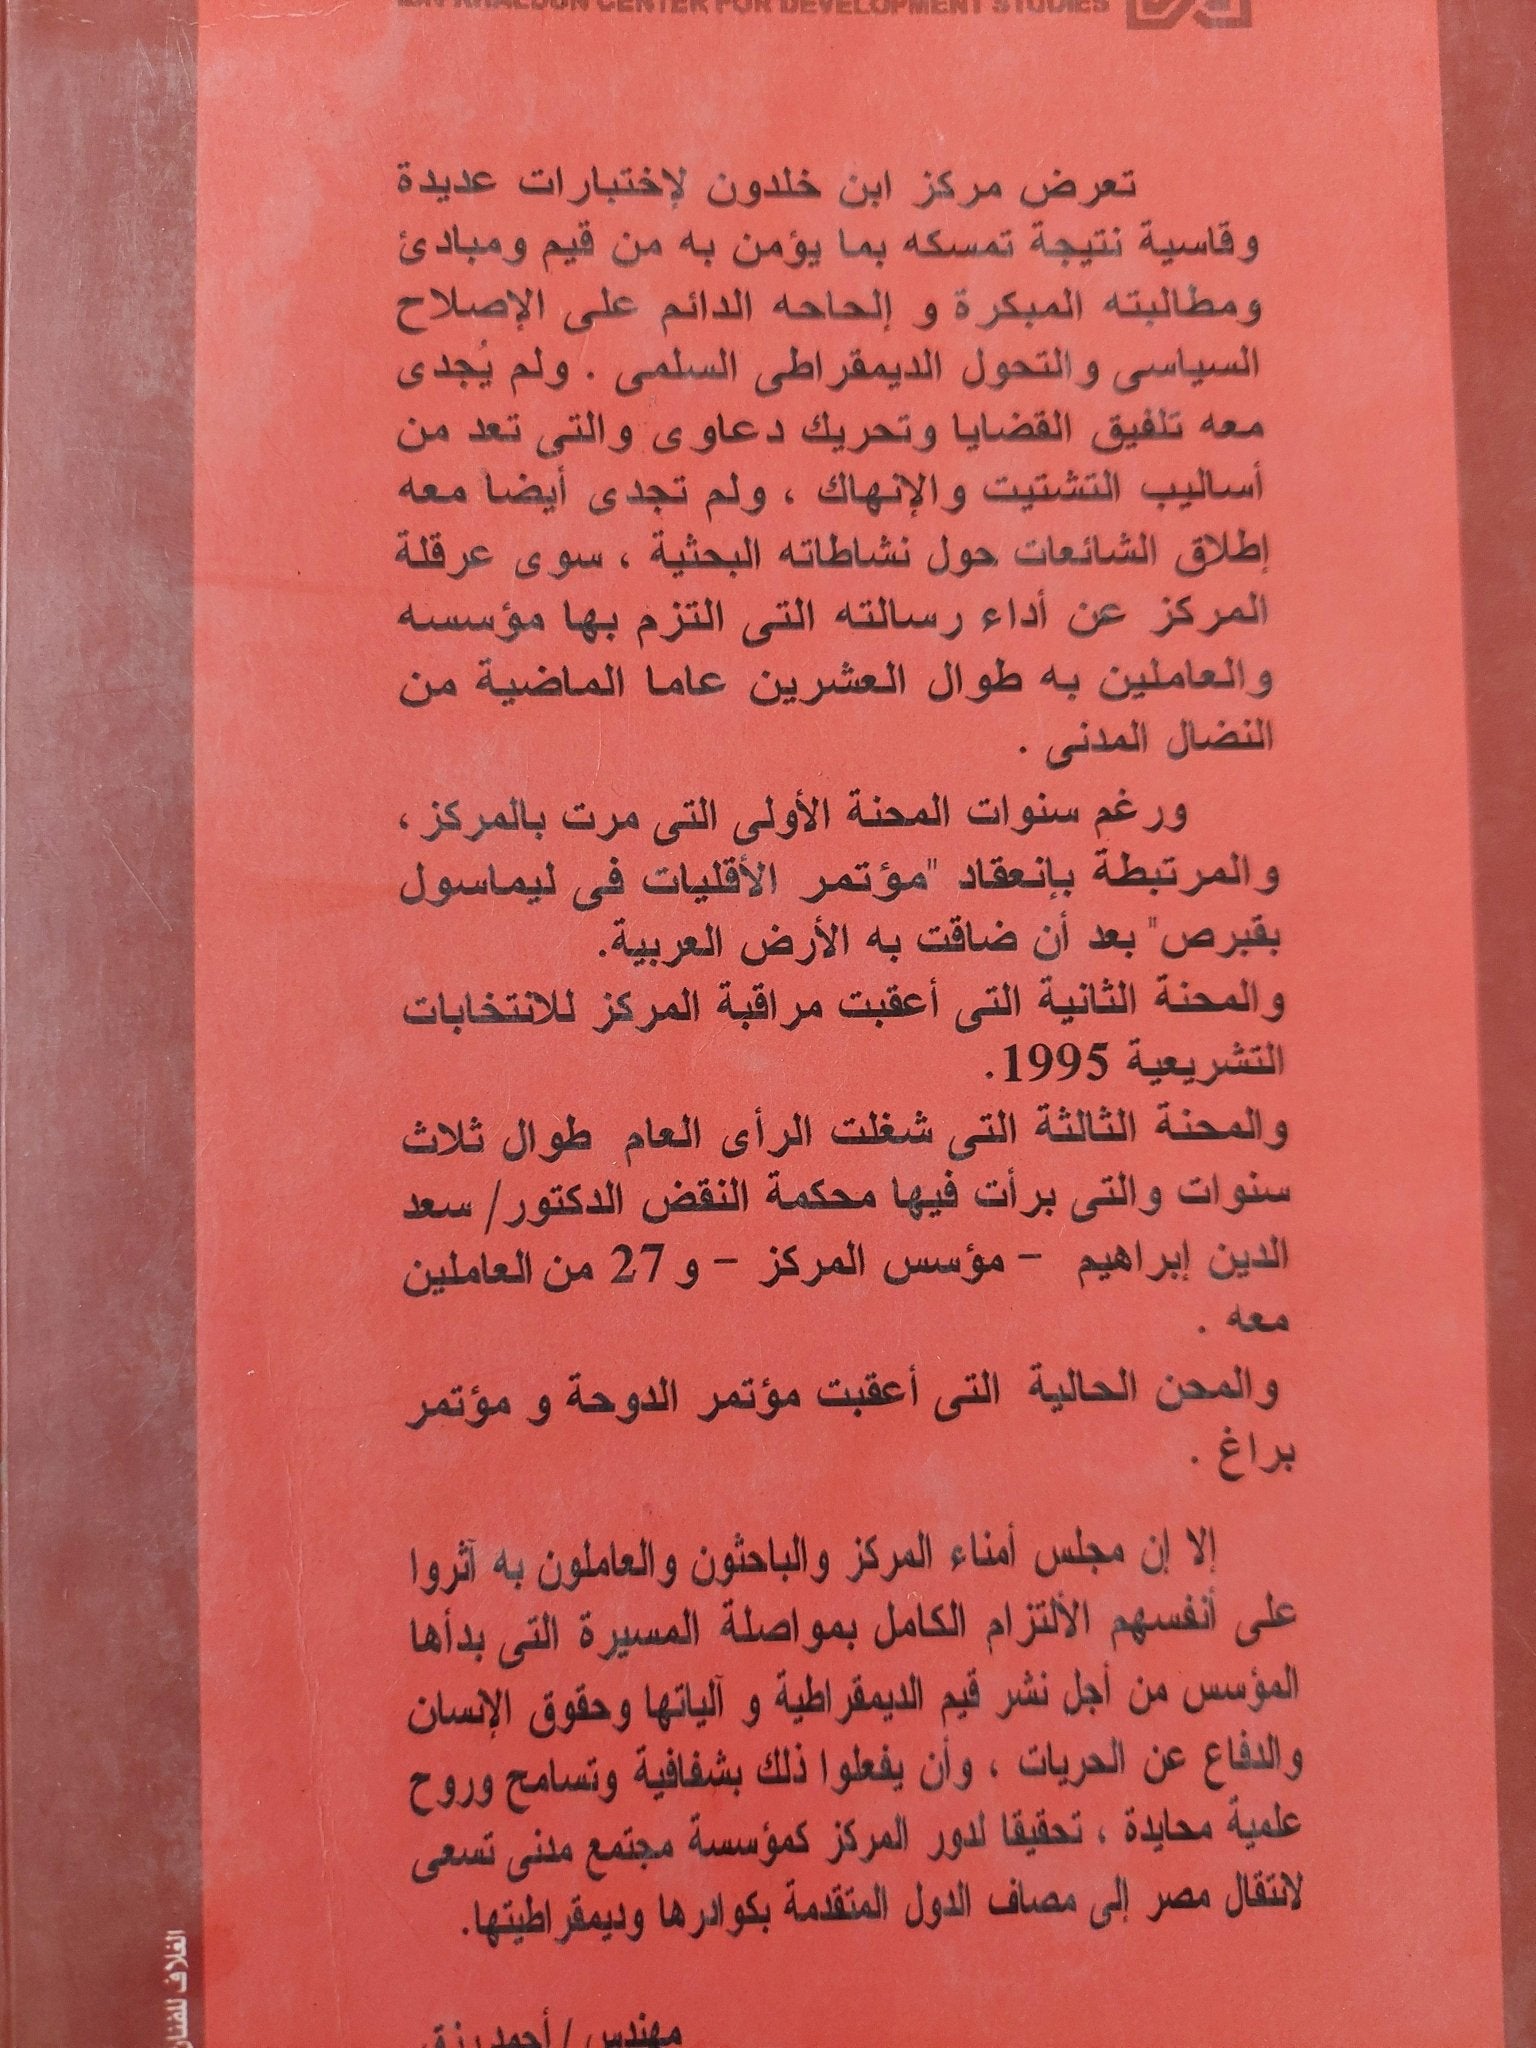 IBN KHALDUN CENTER FOR DEVELOPMENT STUDIES
تعرض مركز ابن خلدون لإختبارات عديدة
وقاسية نتيجة تمسكه بما يؤمن به من قيم ومبادئ
ومطالبته المبكرة و إلحاحه الدائم على الإصلاح
السياسى والتحول الديمقراطى السلمى . ولم يُجدى
معه تلفيق القضايا وتحريك دعاوى والتى تعد من
أساليب التشتيت والإنهاك ، ولم تجدى أيضا معه
إطلاق الشائعات حول نشاطاته البحثية ، سوى عرقلة
المركز عن أداء رسالته التى التزم بها مؤسسه
والعاملين به طوال العشرين عاما الماضية من
النضال المدنى .
ورغم سنوات المحنة الأولى التى مرت بالمركز ،
والمرتبطة بإنعقاد "مؤتمر الأقليات فى ليماسول
بقبرص" بعد أن ضاقت به الأرض العربية.
والمحنة الثانية التى أعقبت مراقبة المركز للانتخابات
التشريعية 1995.
والمحنة الثالثة التى شغلت الرأى العام طوال ثلاث
سنوات والتى برأت فيها محكمة النقض الدكتور/ سعد
الدين إبراهيم - مؤسس المركز - و 27 من العاملين
معه .
والمحن الحالية التى أعقبت مؤتمر الدوحة و مؤتمر
براغ .
إلا إن مجلس أمناء المركز والباحثون والعاملون به آثروا
على أنفسهم الألتزام الكامل بمواصلة المسيرة التى بدأها
المؤسس من أجل نشر قيم الديمقراطية و آلياتها وحقوق الإنسان
والدفاع عن الحريات ، وأن يفعلوا ذلك بشفافية وتسامح وروح
علمية محايدة ، تحقيقا لدور المركز كمؤسسة مجتمع مدنى تسعى
لانتقال مصر إلى مصاف الدول المتقدمة بكوادرها وديمقراطيتها.
مهندس / أحمد رزق
الغلاف للفنان